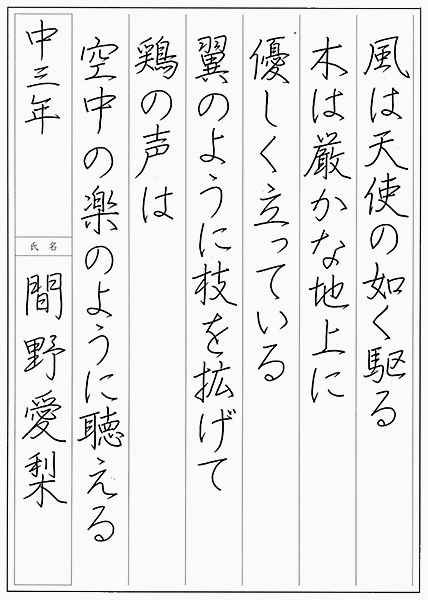 風は天使の如く駆る
木は厳かな地上に
優しく立っている
翼のように枝を拡げて
鶏の声は
空中の楽のように聴える
中三年
氏名
間野愛梨